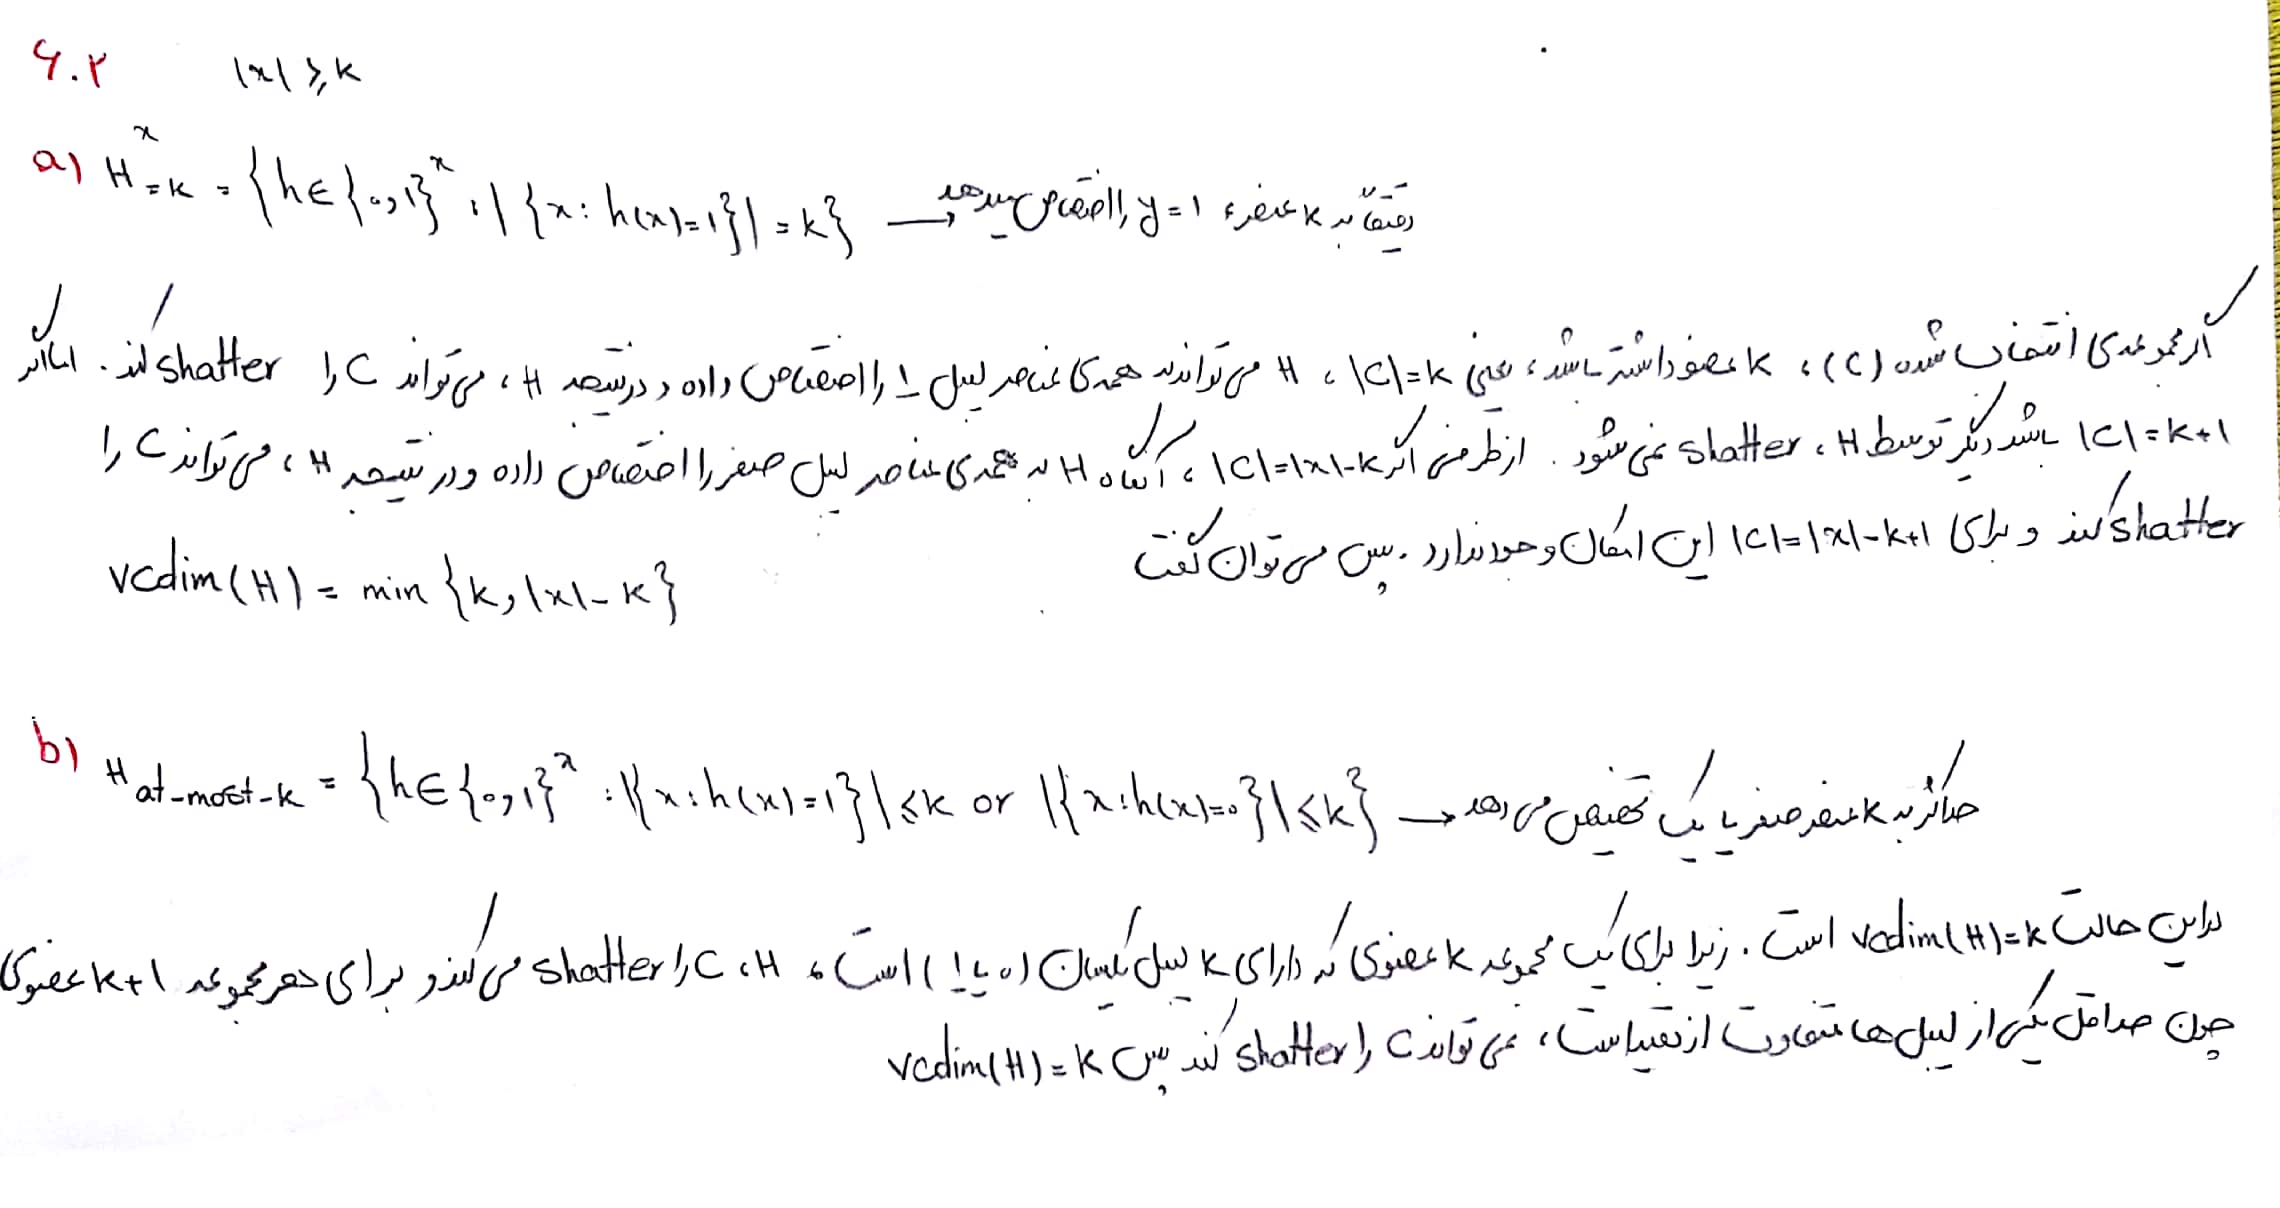 ۶.۲ |x| ≥ k
a) H^x_{=k} = {h ∈ {0,1}^x : |{x : h(x)=1}| = k} → دقیقاً به k عنصر، y = 1 را اختصاص میدهد
اگر مجموعه‌ی انتخاب شده (C)، k عضو داشته باشد، یعنی |C|=k، H می‌تواند به همه‌ی عناصر لیبل 1 را اختصاص داده و در نتیجه H، می‌تواند C را shatter کند. اما اگر
|C|=k+1 باشد دیگر توسط H، shatter نمی‌شود. از طرفی اگر |C|=|x|-k، آنگاه H به همه‌ی عناصر لیبل صفر را اختصاص داده و در نتیجه H، می‌تواند C را
shatter کند و برای |C|=|x|-k+1 این امکان وجود ندارد. پس می‌توان گفت
vcdim(H) = min {k, |x|-k}
b) H_{at-most-k} = {h ∈ {0,1}^x : |{x : h(x)=1}| ≤ k or |{x : h(x)=0}| ≤ k} → حداکثر به k عنصر صفر یا یک تخصیص می دهد
در این حالت vcdim(H)=k است. زیرا برای یک مجموعه k عضوی که دارای k لیبل یکسان (0 یا 1) است، H، C را shatter می‌کند و برای هر مجموعه k+1 عضوی
چون حداقل یکی از لیبل ها متفاوت از بقیه است، نمی تواند C را shatter کند پس vcdim(H) = k